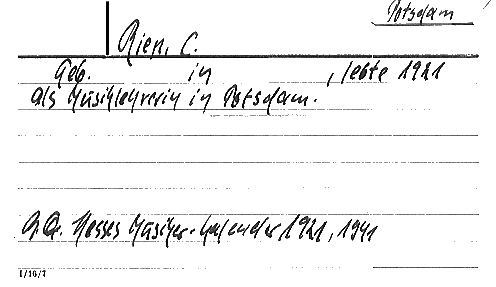 Potsdam
Rien, C.
Geb. in , lebte 1921
als Musiklehrerin in Potsdam.
Hesses Musiker-Kalender 1921, 1941
1/16/7